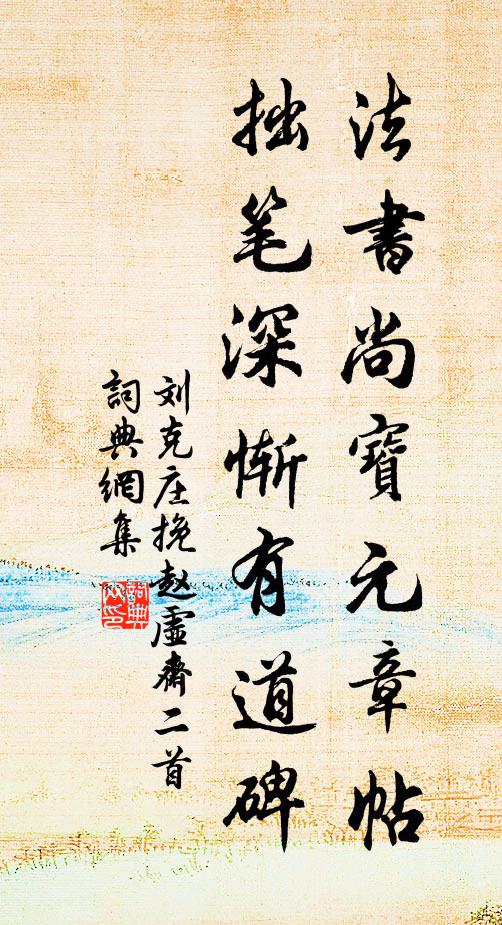 法書尚寶元章帖
拙笔深惭有道碑
刘克庄挽赵虚齋二首
詞典網集
詞典